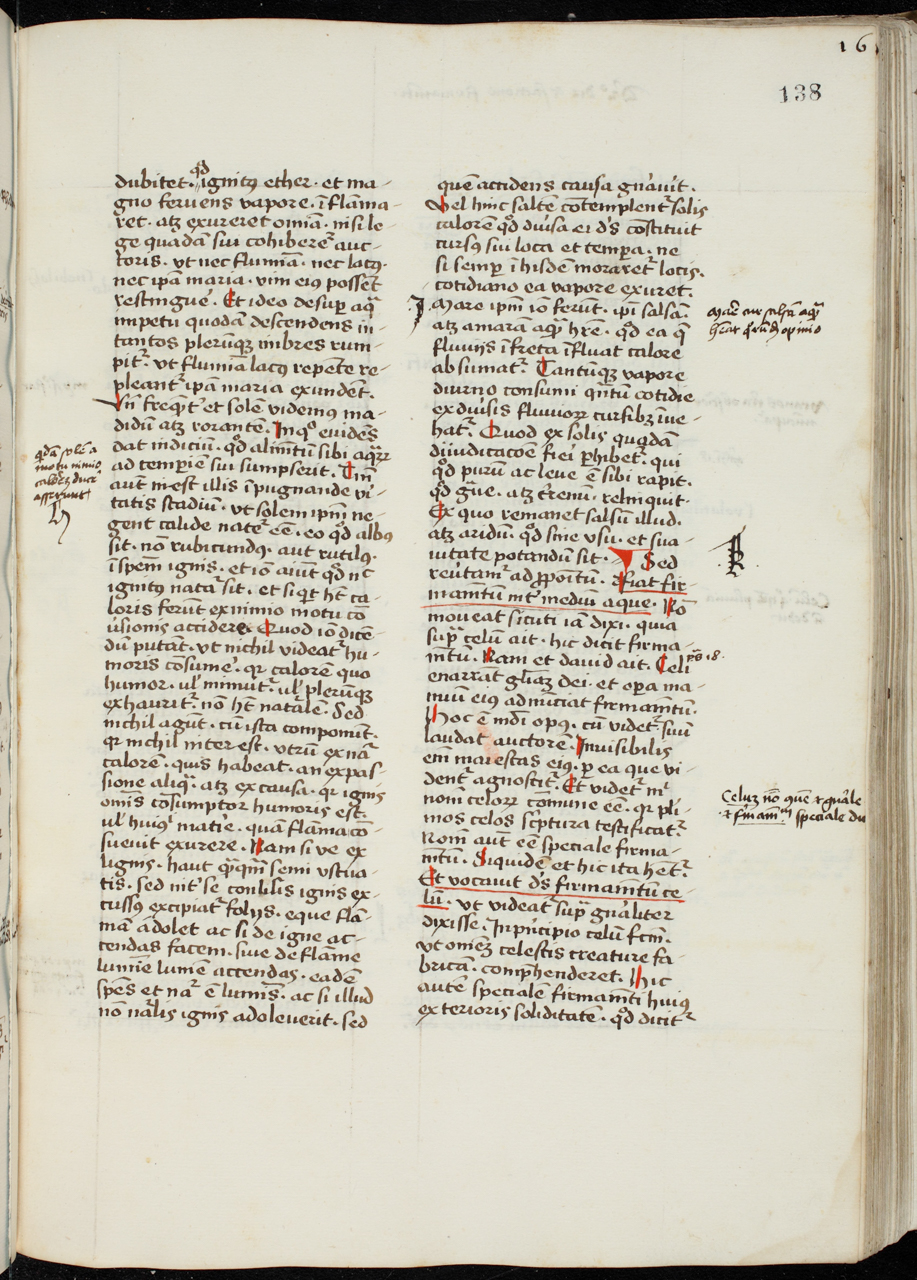 16
138
dubitet · qd ignitꝯ ether · et ma-
gno fervens vapore · ī flāma-
ret · atꝫ exureret omīa · nisi le-
ge quadā sui cohiberet᷑ auc-
toris · ut nec flumīa · nec lacꝯ ·
nec ipā maria · vim eiꝯ possēt
restingue᷑ · Et ideo desuꝑ aq̄
impetu quodā descendens in-
tantos pleruꝫqꝫ imbres rum-
pit᷑ · ut flumīa lacꝯ repente re-
pleant᷑ ipā maria exundent ·
Un̄ freq̄t᷑ et solē videmꝯ ma-
didū atꝫ rorantē · In qͦ evidēs
dat indiciū · qd alimt̄ū sibi aqꝝ
ad temperiē sui sumpserit · Tm̄
aut̄ inest illis ī pugnande vi-
tatis studiū · ut solem ipm̄ ne-
gent calide nate᷑ eē · eo qd albꝯ
sit · nō rubicundꝯ · aut rutilꝯ ·
ī spem̄ ignis · et iō aiūt qd nc̄
ignitꝯ nata᷑ sit · et si qͥt ht̄ ca-
loris ferūt ex nimio motu cō
v̄sionis accidere · Quod iō dicē-
dū putāt · ut nichil videat᷑ hu-
moris cōsume᷑ · qꝛ calorē quo
humor · ul᷑ minuit᷑ · ul᷑ pleruꝫqꝫ
exhaurit᷑ · nō ht̄ nat᷑alē · Sed
nichil agūt · cū ista componūt ·
qꝛ nichil interest · utrū ex na᷑
calorē · quis habeat · an ex pas-
sione aliq̄ · atꝫ ex causa · qꝛ ignis
om̄is cōsumptor humoris est ·
ul᷑ huiꝯ mat᷑ie · quā flāma cō-
suevit exurere · Nam sive ex
lignis · haut q̄q̄m semi ustua-
tis · sed int᷑ se conlisis ignis ex-
cussꝯ excipiat᷑ folijs · eque flā-
mā adolet ac si de igne ac-
tendas facem · sive de flāme
lumīe lumē accendas · eadē
spēs et na᷑ ē lumīs · ac si illud
nō nat᷑alis ignis adoleverit · sed
quē accidens causa gn̄avit ·
Vel hinc saltē cōtemplent᷑ solis
calorē qd div᷑sa ei dꝰs cōstituit
cursꝯ sui loca et tempa · ne
si semꝑ ī hisdē moraret᷑ locis ·
cotidiano ea vapore exuret ·
Mare ipm̄ iō ferūt · ipī salsā
atꝫ amarā aq̄ hr̄e · qd ea q̄
fluvijs ī freta īfluāt calore
absumat᷑ · Tantūqꝫ vapore
diurno consumi qn̄tū cotidie
ex div᷑sis fluvioꝝ cursibꝫ īve-
hat᷑ · Quod ex solis quadā
dijudicatōe fieri ꝑhibet᷑ · qui
qd purū ac leve ē sibi rapit ·
qd gͣue · atꝫ t᷑renū · relinquit ·
Ex quo remanet salsū illud ·
atꝫ aridū · qd sine usu · et sua-
vitate potandū sit · Sed
rev᷑tam᷑ ad ꝓpoītū · Fiat fir-
mamt̄ū int᷑ mediū aque · Nō
moveat sicuti iā dixi · quia
supͣ celū ait · hic dicit firma-
mt̄ū · Nam et david ait · Celi
enarrāt gl̄iaꝫ dei · et opa ma-
nuū eiꝯ adnūciat firmamt̄ū ·
Hoc ē mdī opꝯ · cū videt᷑ suū
laudat auctorē · Invisibilis
em̄ maiestas eiꝯ · ꝑ ea que vi-
dent᷑ agnoscit᷑ · Et videt᷑ m᷑
nom̄ celoꝝ cōmune eē · qꝛ pl᷑i-
mos celos sc᷑ptura testificat᷑ ·
Nom̄ aut̄ eē speciale firma-
mt̄ū · Siquidē et hic ita hēt᷑ ·
Et vocavit dꝰs firmamt̄ū ce-
lū · ut videat᷑ supͣ gn̄aliter
dixisse · In pͥncipio celū fcm̄ ·
ut om̄eꝫ celestis creature fa-
bricā · comphenderet · Hic
autē specialē firmamt̄i huiꝯ
exterioris soliditatē · qd dicit᷑
qdā solē a
motu nimio
calorē ducē
asserunt
Mare cur salsā aquā
habeat quorūdā opinio
ps 18 ·
Celum nomen quoque generale
et firmamtum speciale du